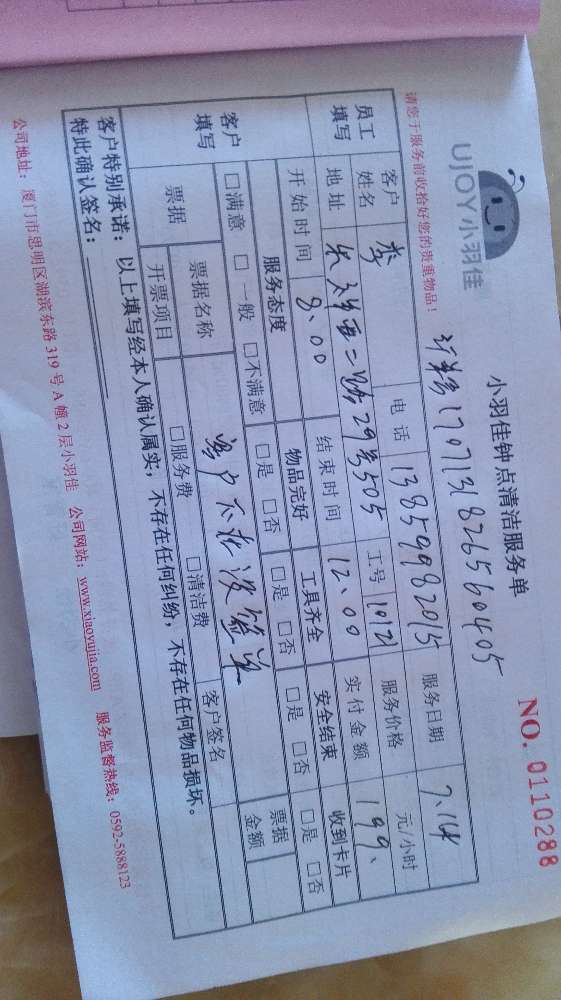 UJOY小羽佳
小羽佳钟点清洁服务单
NO. 0110288
请您于服务前收拾好您的贵重物品！
17071318265560405
员工填写
客户姓名 李 电话 13859982015 服务日期 7.14
地址 二路29号505 工号 10121 服务价格 元/小时
开始时间 8.00 结束时间 12.00 实付金额 199.
客户填写
服务态度 物品完好 工具齐全 安全结束 收到卡片
□满意 □一般 □不满意 □是 □否 □是 □否 □是 □否 □是 □否
票据 票据名称 客户不在没签单 票据金额
开票项目 □服务费 □清洁费 客户签名
客户特别承诺：以上填写经本人确认属实，不存在任何纠纷，不存在任何物品损坏。
特此确认签名：
公司地址：厦门市思明区湖滨东路319号A幢2层小羽佳 公司网站：www.xiaoyujia.com 服务监督热线：0592-5888123